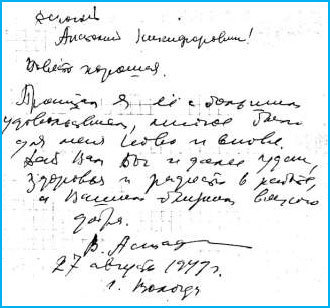 Дорогой
Анатолий Никифорович!
Повесть хорошая.
Прочитал я её с большим
удовольствием, многое было
для меня ново и внове.
Дай Вам Бог и далее удачи,
здоровья и радости в работе,
а Вашим близким всего
добра.
В. Астаф
27 августа
г. Вологда